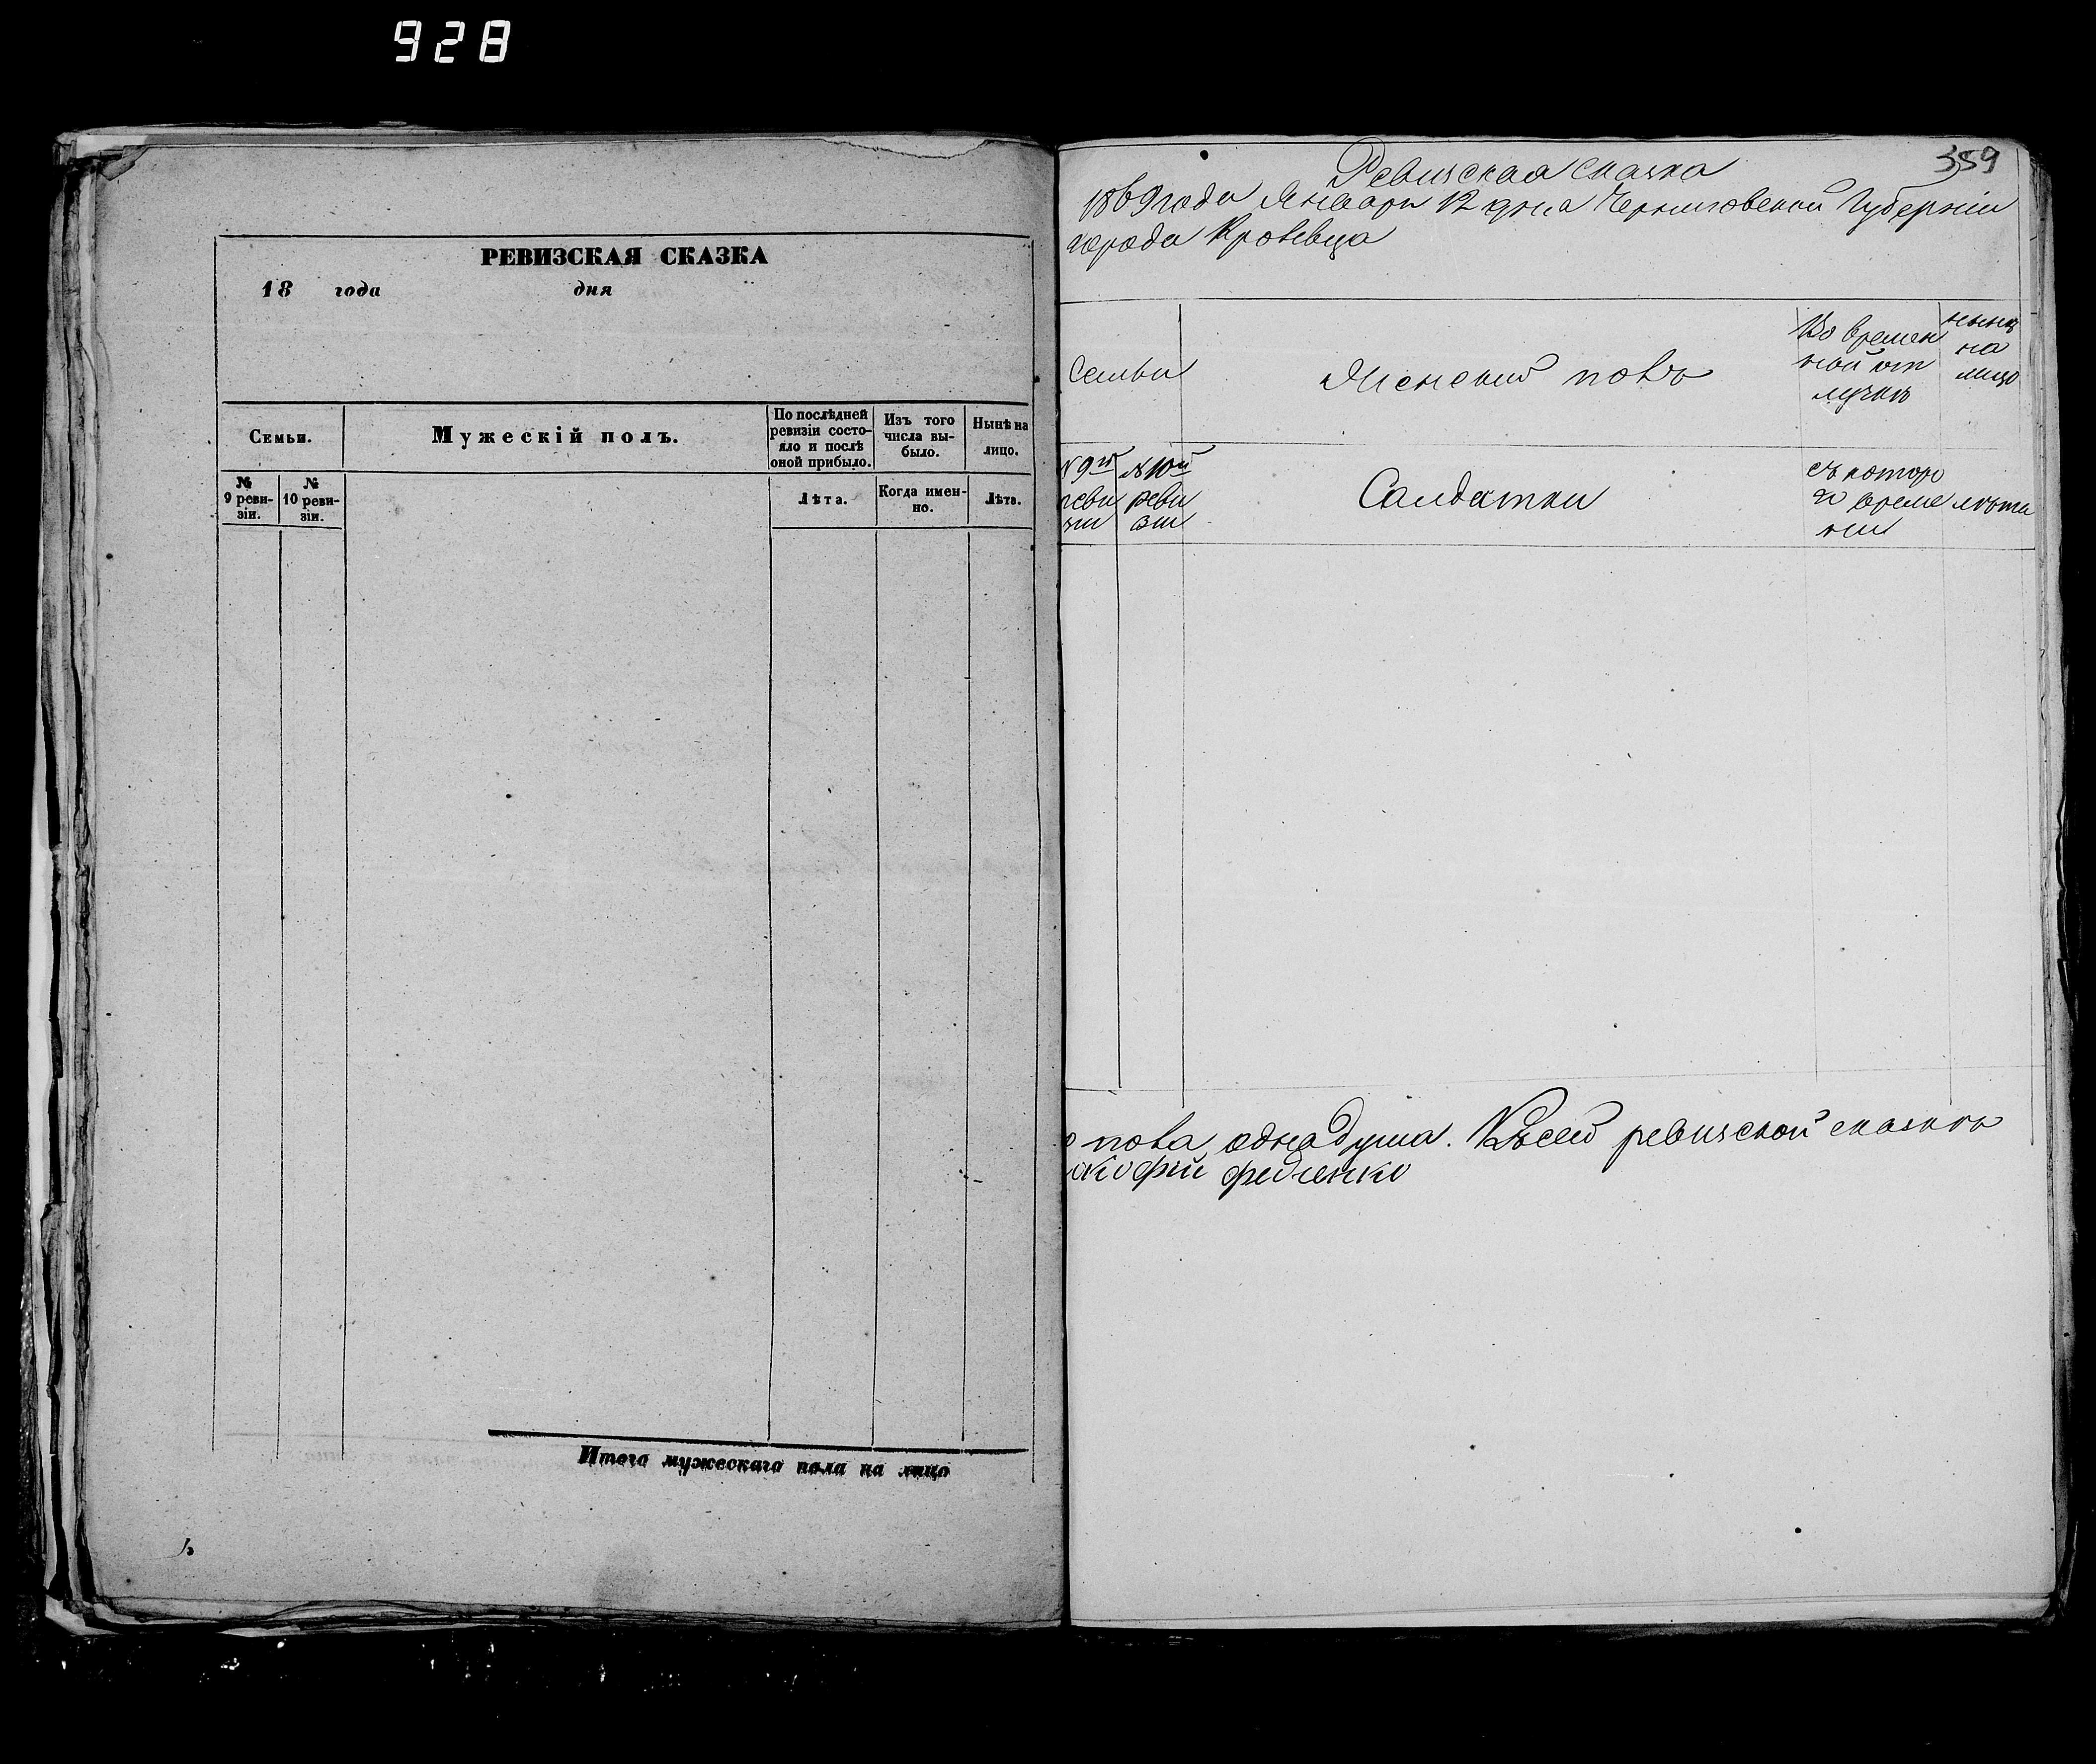 928
РЕВИЗСКАЯ СКАЗКА
18 года дня
Семьи.
Мужескій полъ.
По послѣдней ревизіи состояло и послѣ оной прибыло.
Изъ того числа выбыло.
Нынѣ на лицо.
№ 9 ревизіи.
№ 10 ревизіи.
Лѣта.
Когда именно.
Лѣта.
Итого мужескаго пола на лицо
359
Ревизская сказка
1869 года Января 12 дня Черниговской Губерніи
города Кролевца
Семьи
Женский полъ
Во времен
ной от
лучкѣ
нынѣ
на
лицо
№ 9й
реви
зіи
№ 10й
реви
зіи
Салдатки
съ которо
го време
ни
лѣта
пола одна душа. Къ сей ревизской сказкѣ
кофій Федченко